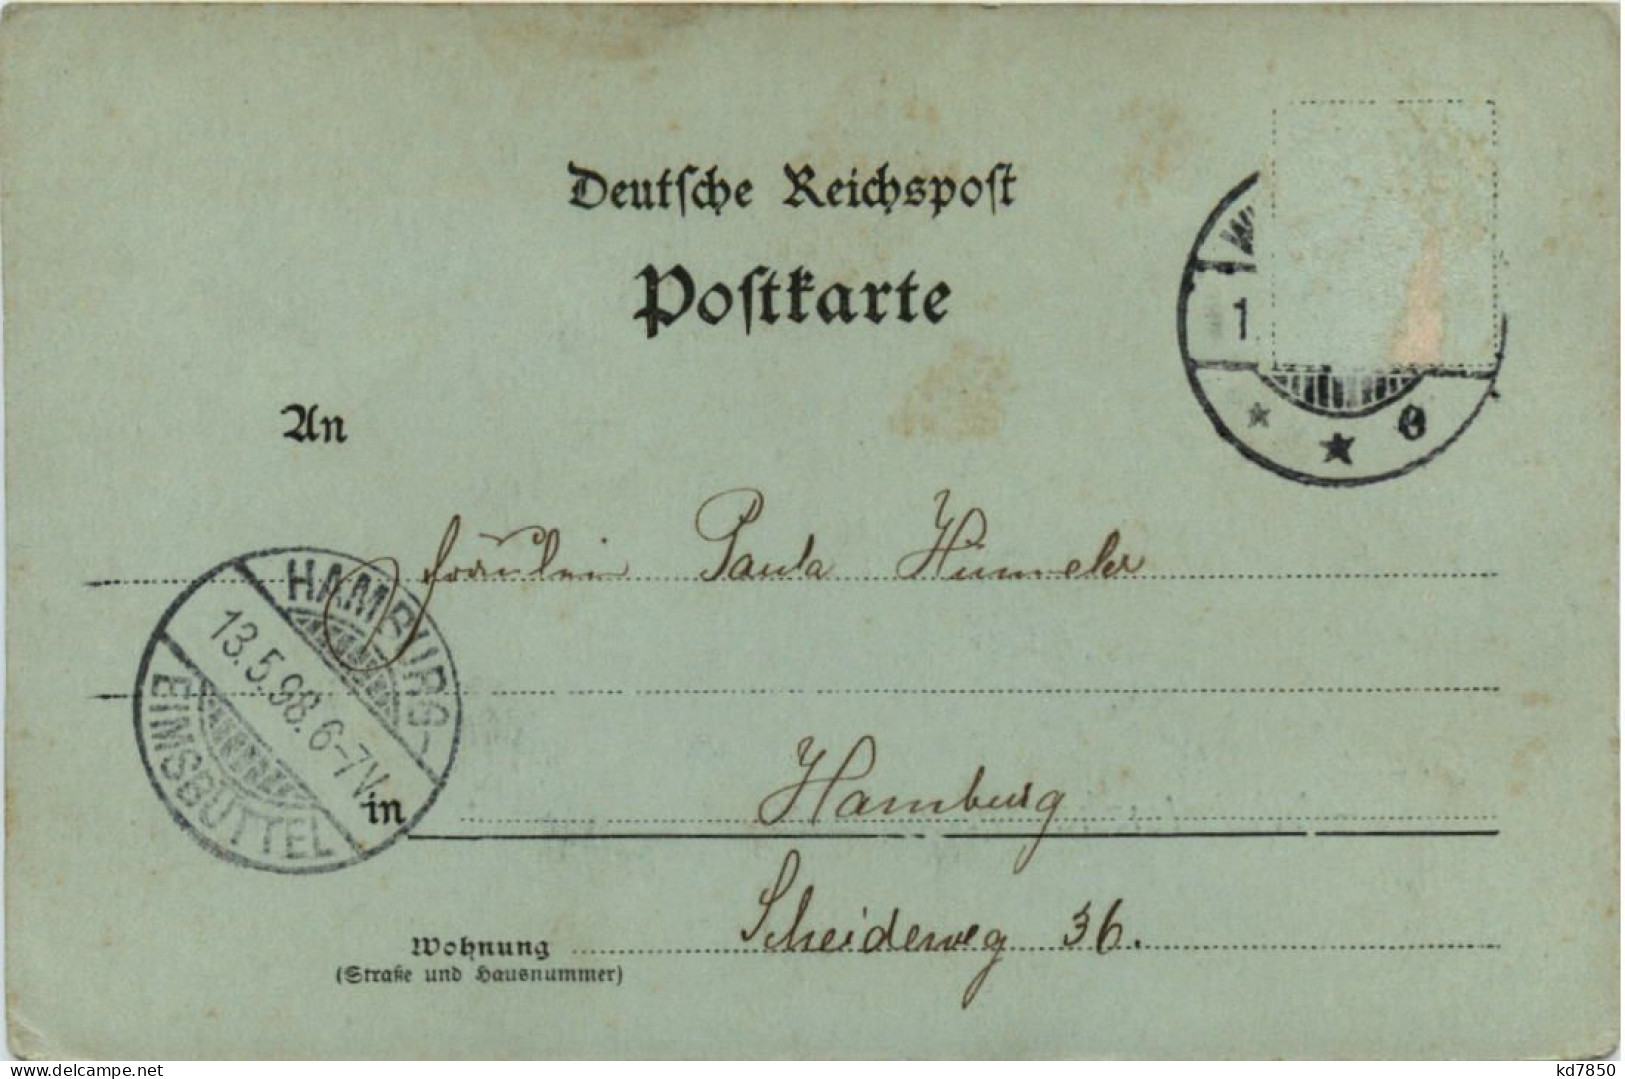 Deutsche Reichspost
Postkarte
An
Fräulein Paula
HAMBURG-
13.5.98.6-7V.
EIMSBÜTTEL
in Hamburg
Wohnung Scheideweg 36.
(Straße und Hausnummer)
1.
delcampe.net
kd7850